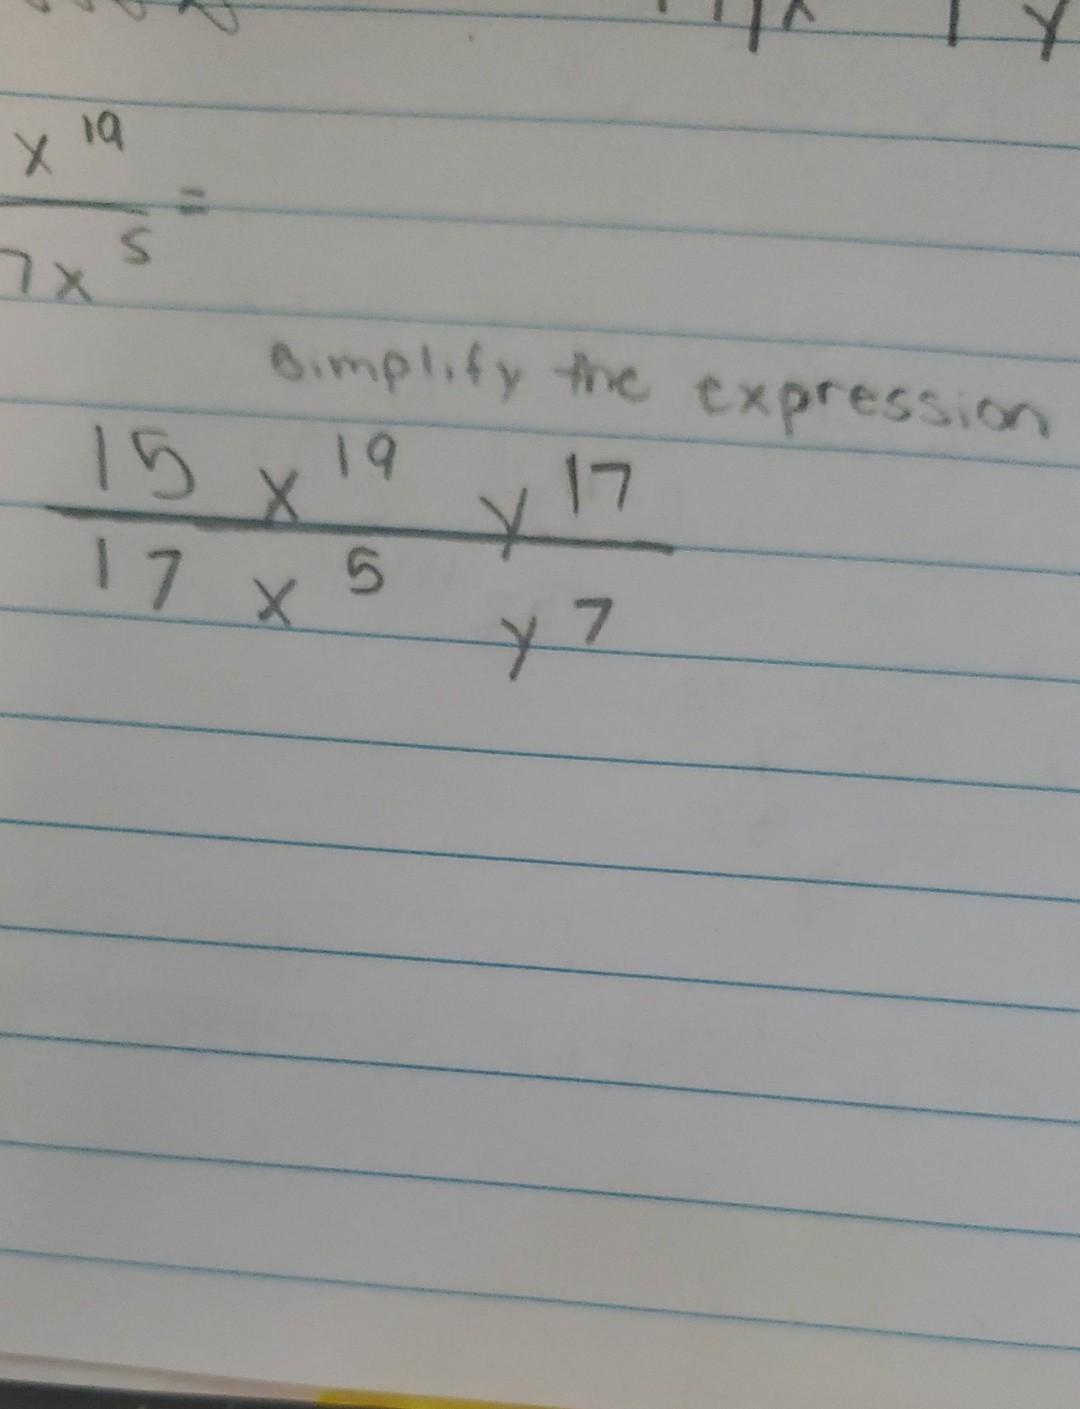 x^19
7x^5 =
Simplify the expression
15 x^19 y^17
17 x^5 y^7